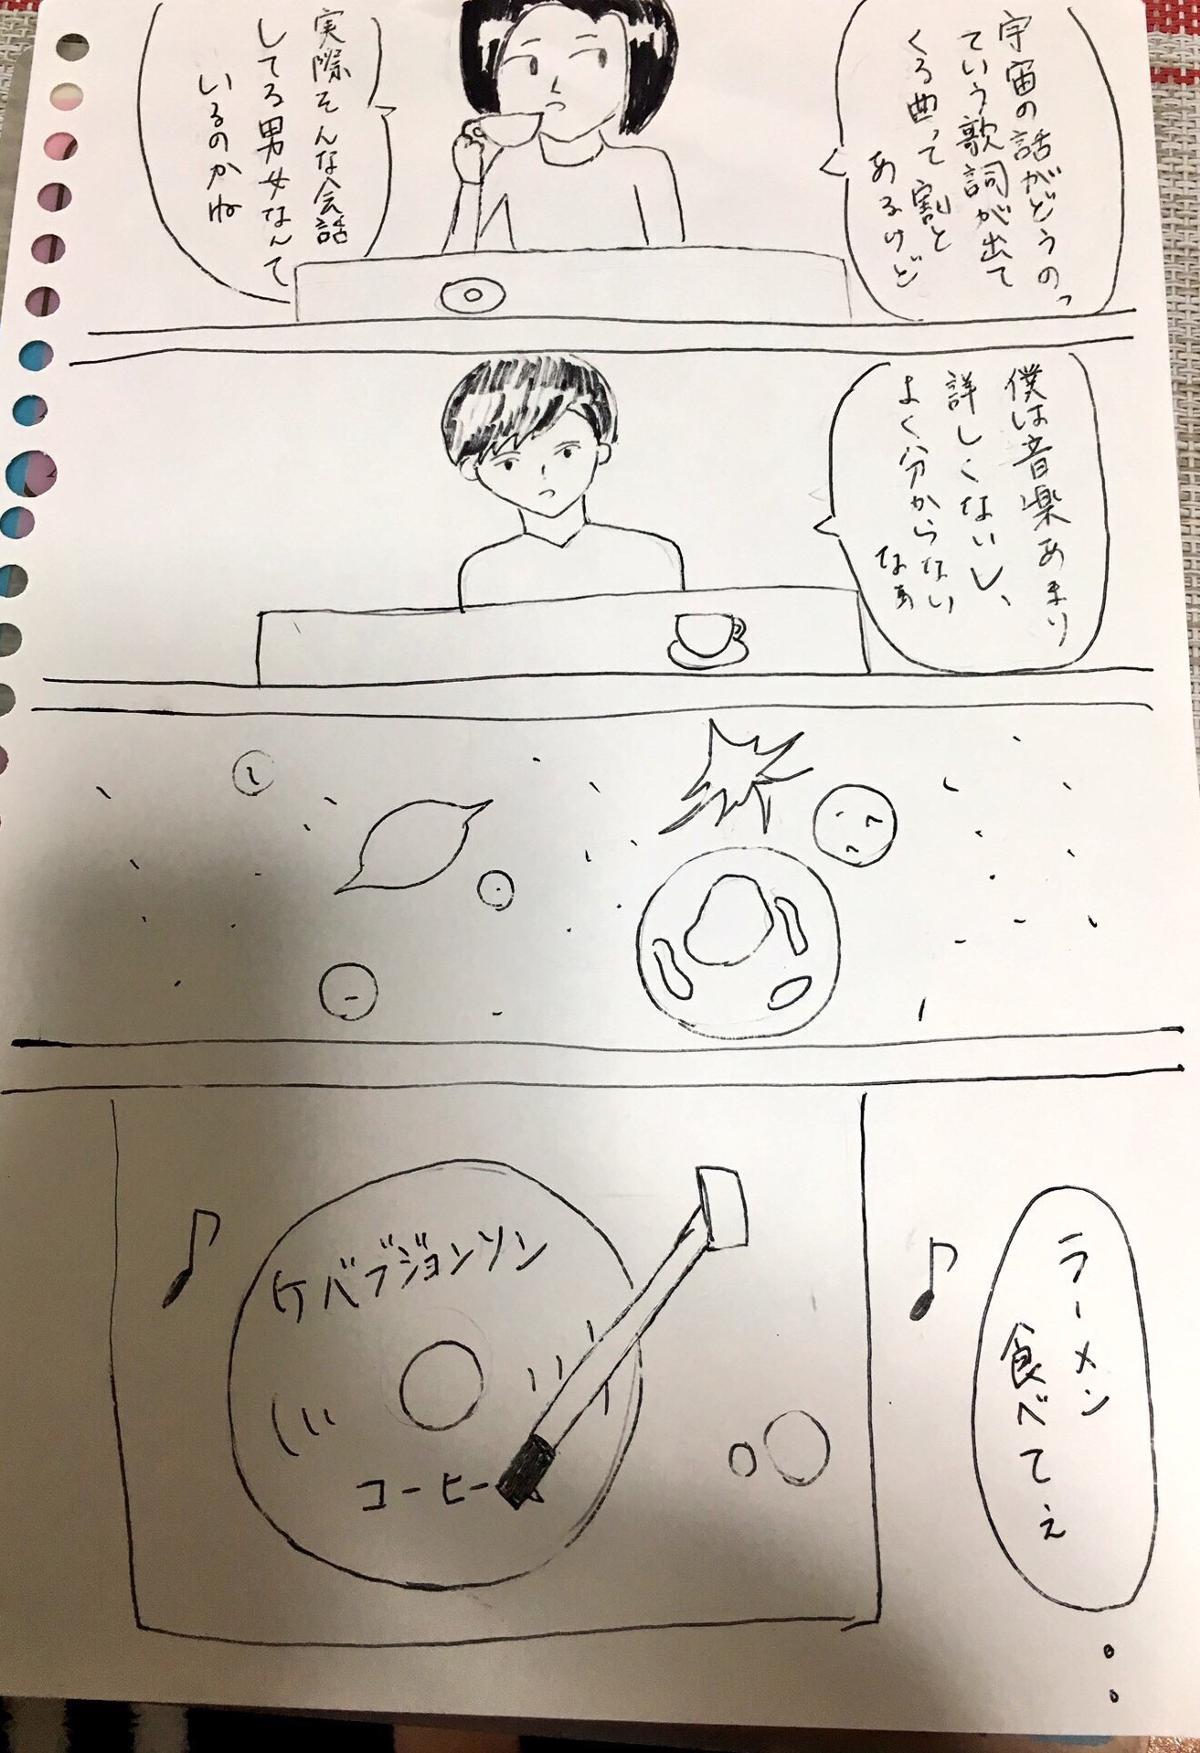 宇宙の話がどうのっ
ていう歌詞が出て
くる曲って割と
あるけど
実際そんな会話
してる男女なんて
いるのかね
僕は音楽あまり
詳しくないし、
よく分からない
なぁ
ケバブジョンソン
コーヒー
ラーメン
食べてぇ